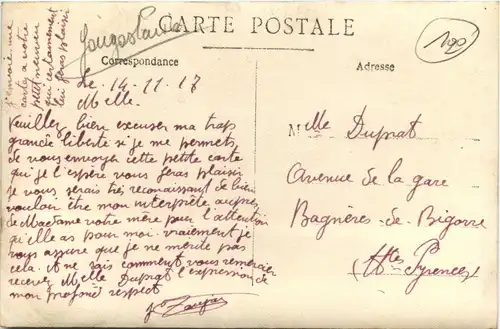 CARTE POSTALE
Yougoslavie
190
Correspondance
Adresse
J'envoie une
carte a votre
petit neveu
qui certainement
lui feras plaisir
Le. 14-11-17
Melle.
Veuillez bien excuser ma trop
grande liberté si je me permets
de vous envoyer cette petite carte
qui je l'espère vous feras plaisir
je vous serais très reconaissant de bien
vouloir être mon interprète auprès
de Madame votre mère pour l'attention
qu'elle as pour moi. vraiement je
vous assure que je ne mérite pas
cela. et ne sais comment vous remercier
recevez Melle Duprat l'expression de
mon profond respect
Melle Duprat
Avenue de la gare
Bagnères-de-Bigorre
(Htes Pyrenées)